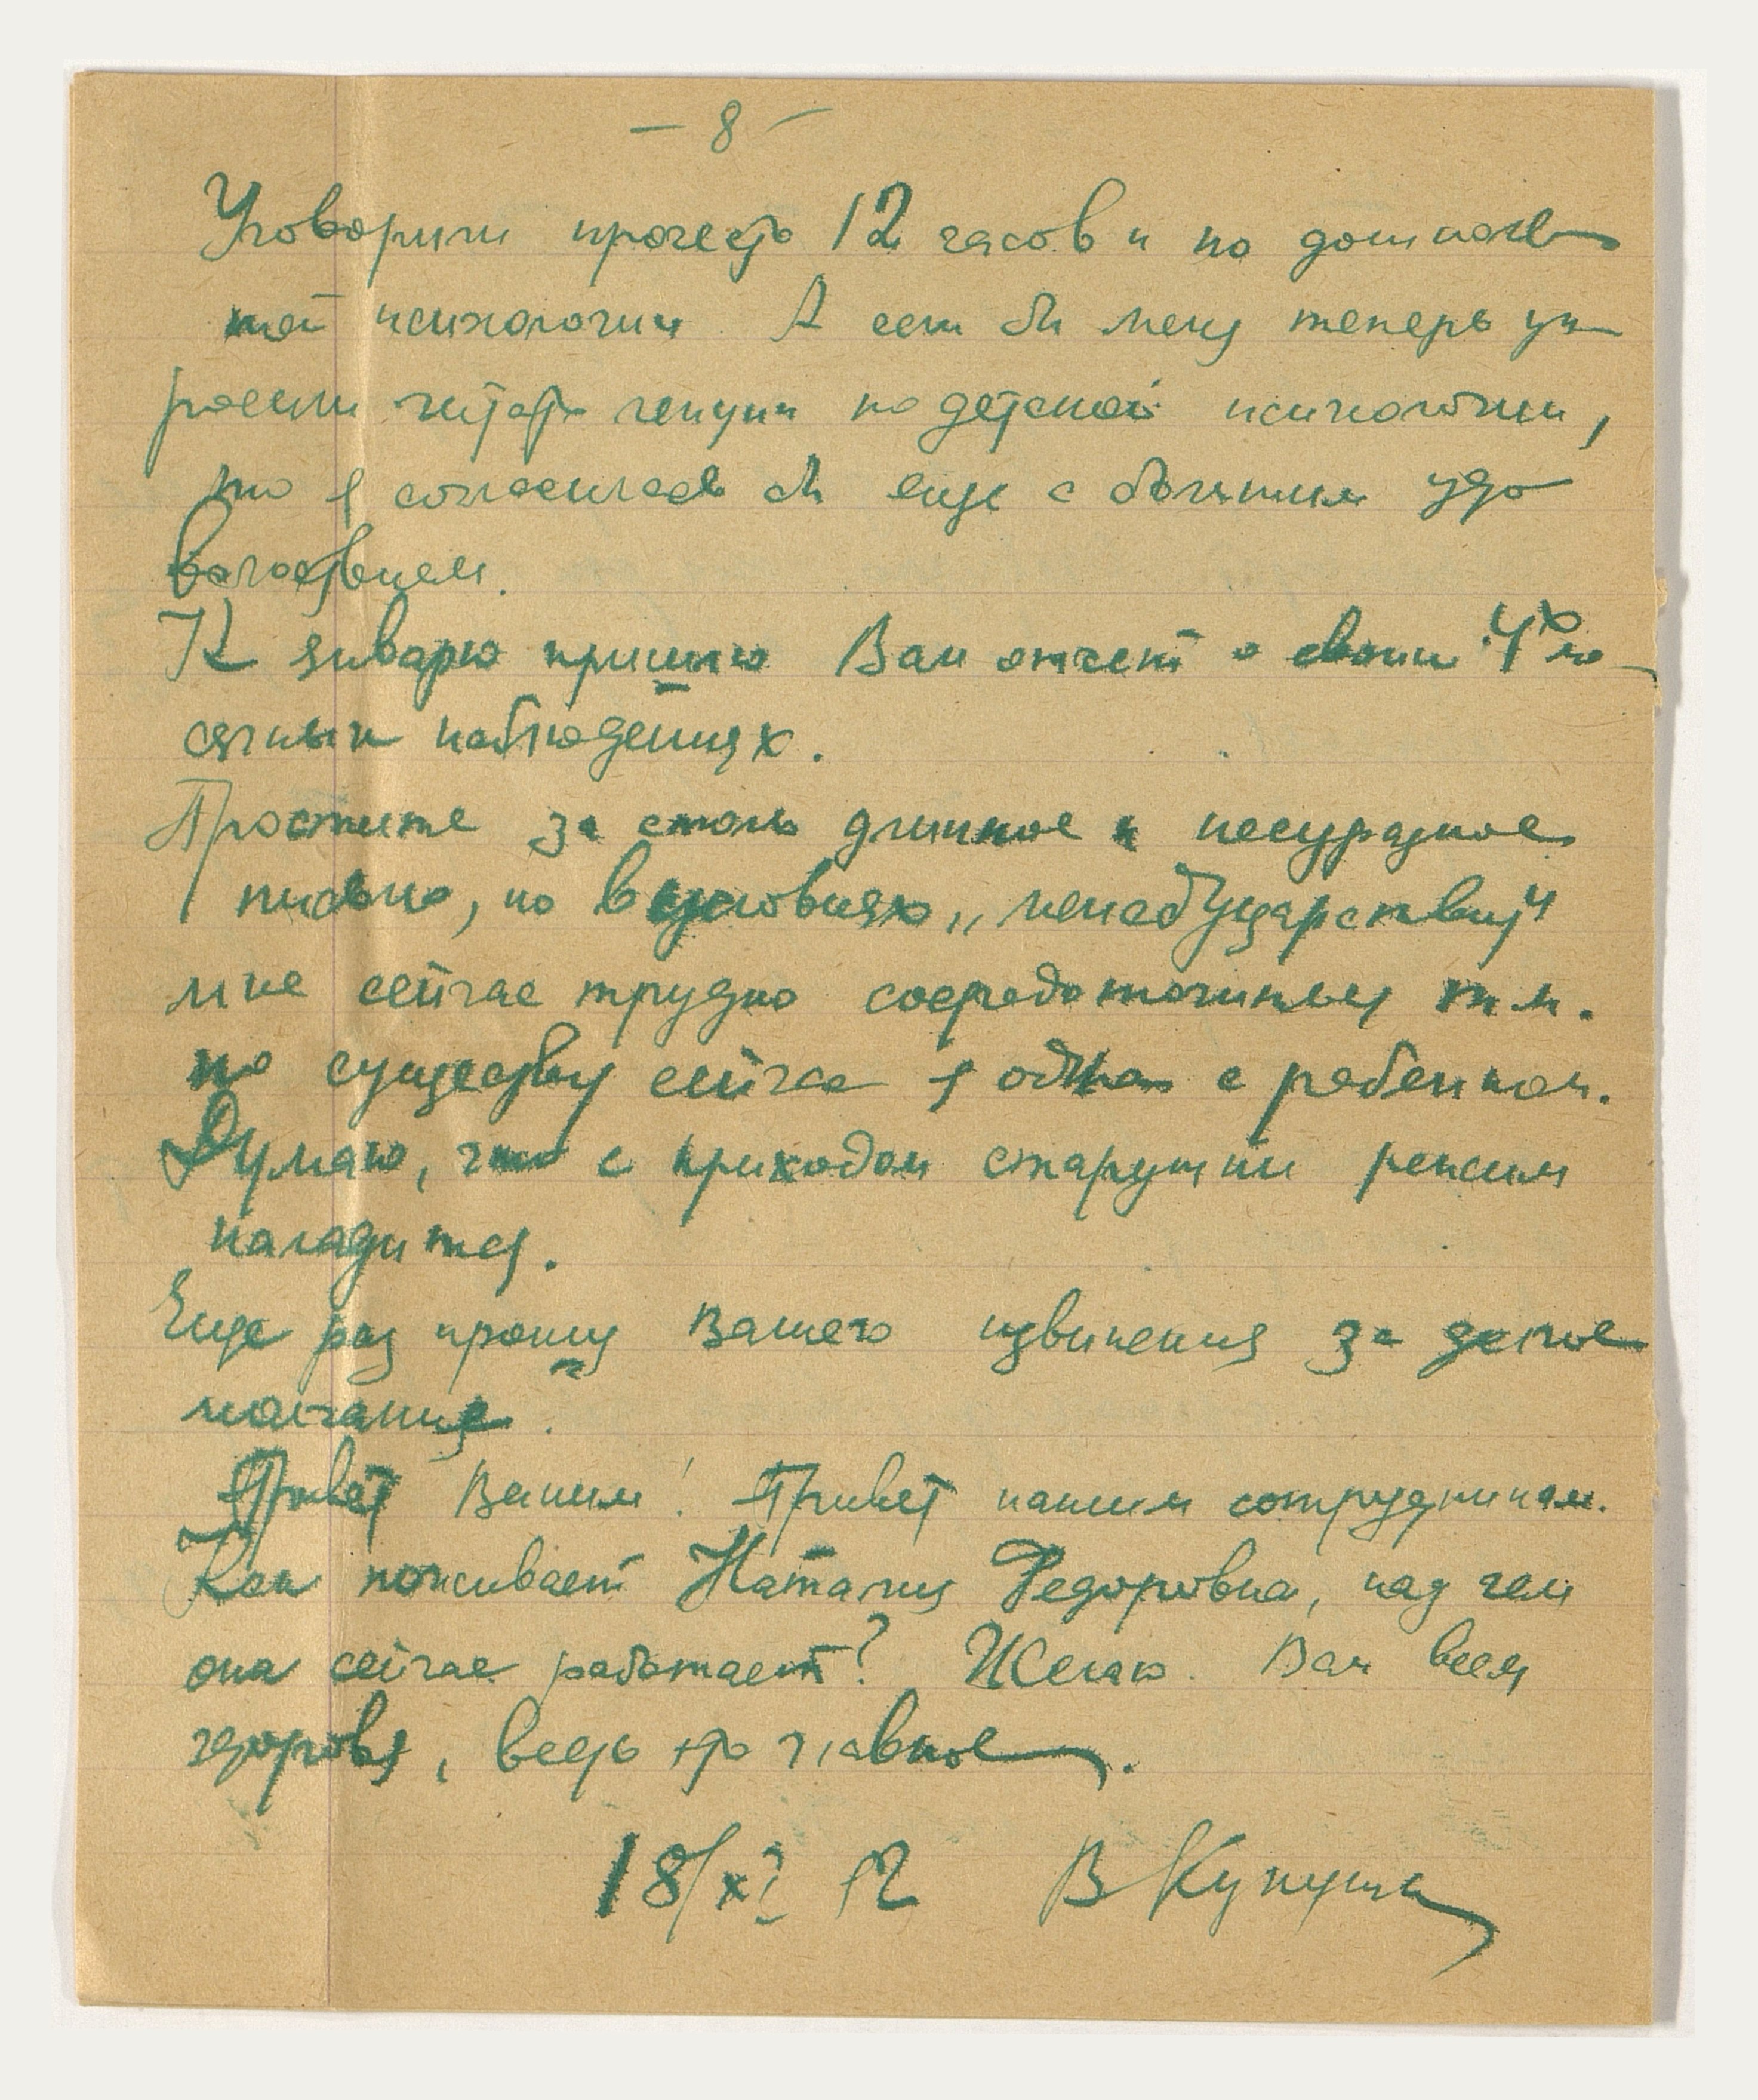 – 8 –
Уговорили прочесть 12 часов и по дошколь
ной психологии. А если бы меня теперь уп
росили читать лекции по детской психологии,
то я согласилась бы еще с большим удо
вольствием.
К январю пришлю Вам отчет о своих 4х ме-
сячных наблюдениях.
Простите за столь длинное и несуразное
письмо, но в условиях „
мне сейчас трудно сосредоточиться т.к.
по существу сейчас я одна с ребенком.
Думаю, что с приходом старушки режим
наладится.
Еще раз прошу Вашего извинения за долгое
молчание.
Привет Вашим! Привет нашим сотрудникам.
Как поживает Наталия Федоровна, над чем
она сейчас работает? Желаю Вам всем
здоровья, ведь это главное.
18/XI В